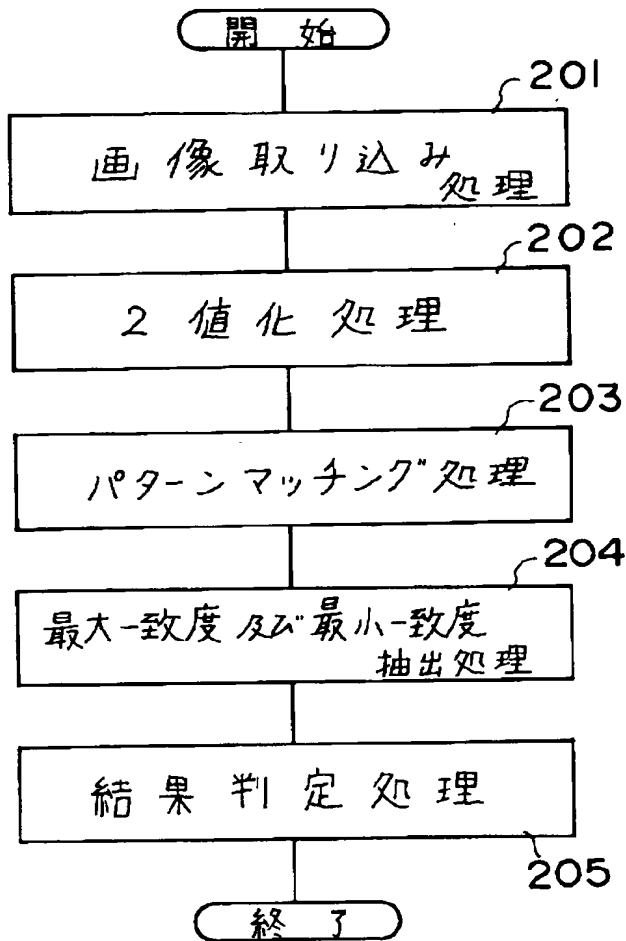 開始
201
画像取り込み
処理
202
2値化処理
203
パターンマッチング処理
204
最大一致度及び最小一致度
抽出処理
結果判定処理
205
終了